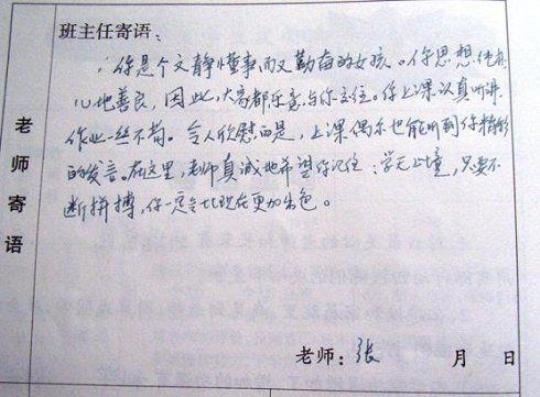 班主任寄语：
你是个文静懂事而又勤奋的女孩。你思想纯真
心地善良，因此，大家都乐意与你交往。你上课认真听讲，
作业一丝不苟。令人欣慰的是，上课偶尔也能听到你精彩
的发言。在这里，老师真诚地希望你记住：学无止境，只要不
断拼搏，你一定会比现在更加出色。
老师寄语
老师：张 月 日